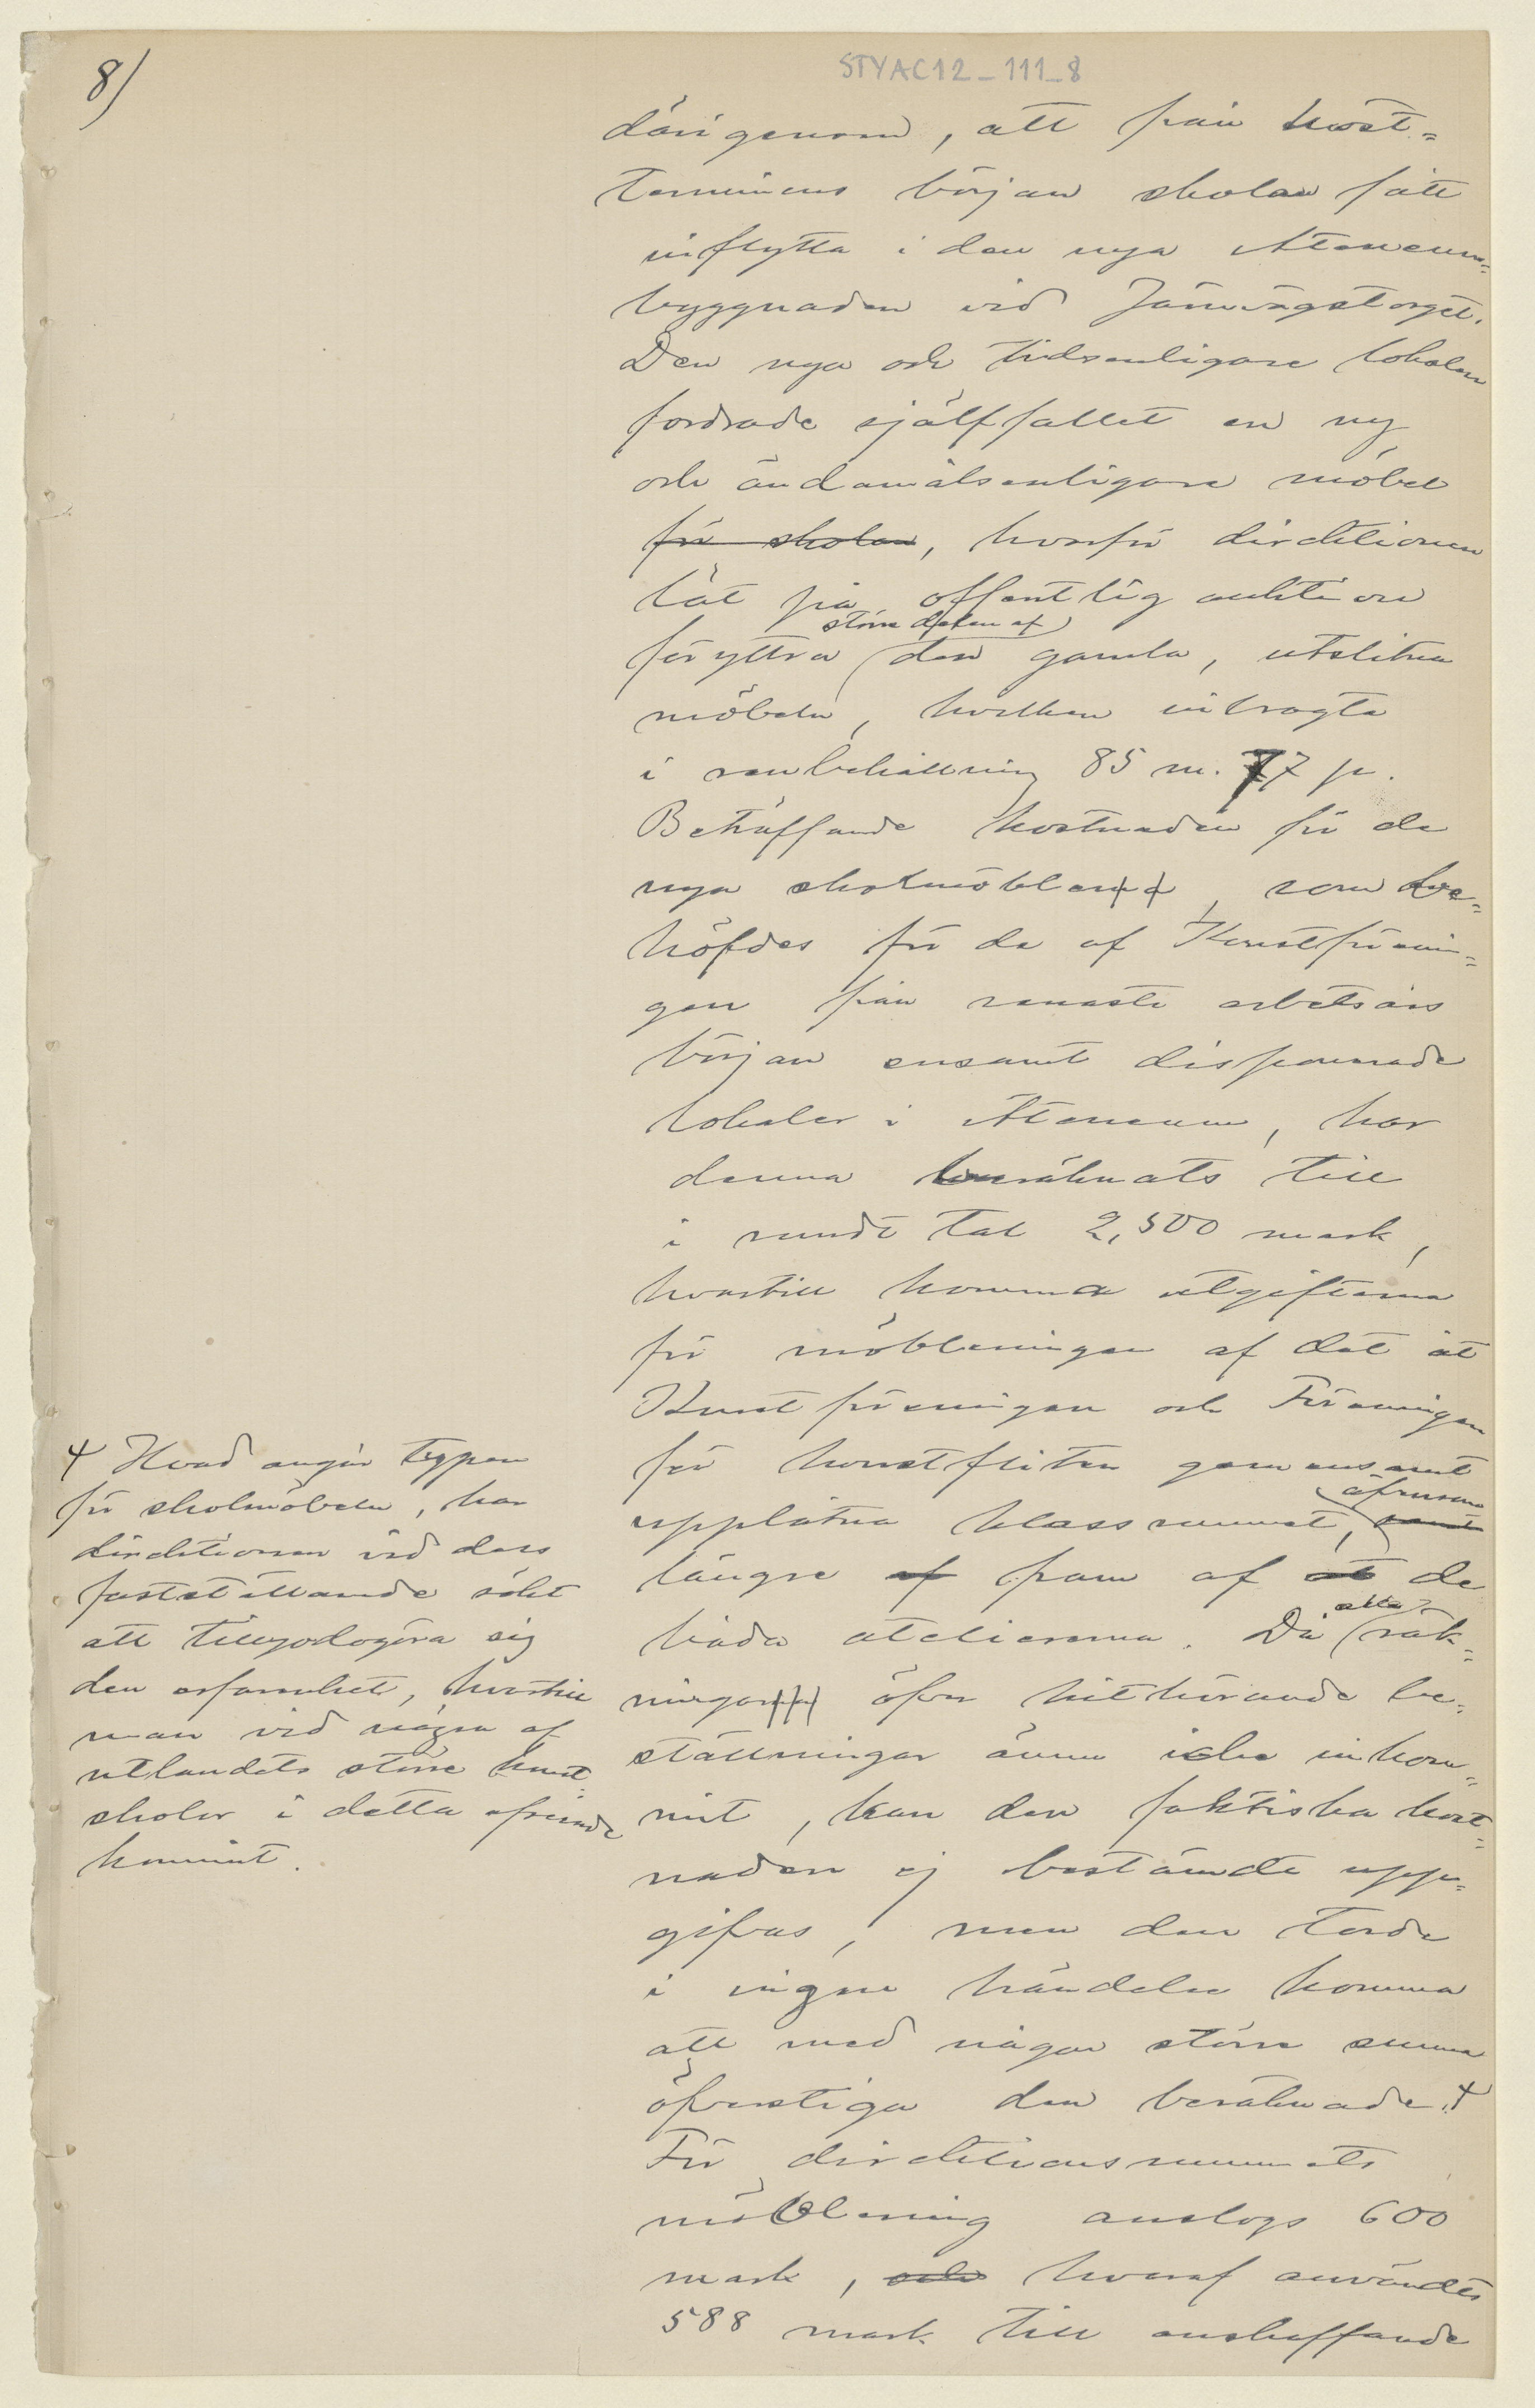 8)
STYAC12_111_8
därigenom, att från höst-
terminens början skolan fått
inflytta i den nya Ateneum-
byggnaden vid Järnvägstorget.
Den nya och tidsenligare lokalen
fordrade själffallet en ny
och ändamålsenligare möbel
för skolan, hvarför direktionen
lät på offentlig auktion
större delen af
föryttra den gamla, utslitna
möbeln, hvilken inbragte
i ren behållning 85 m. 77 p.
Beträffande kostnaden för de
nya skolmöblerna, som be-
höfdes för de af Konstförenin-
gen från senaste arbetsårs
början ensamt disponerade
lokaler i Ateneum, har
denna beräknats till
i rundt tal 2,500 mark,
hvartill komma utgifterna
för möbleringen af det åt
Konstföreningen och Föreningen
för konstfliten gemensamt
äfvensom
upplåtna klassrummet, samt
längre af fram af at de
båda atelierna. Då räk-
alla
ningar öfver hithörande be-
ställningar ännu icke inkom-
mit, kan den faktiska kost-
naden ej bestämdt upp-
gifvas, men den torde
i ingen händelse komma
att med någon större summa
öfverstiga den beräknade. +
För direktionsrummets
möblering anslogs 600
mark, och hvaraf användts
588 mark till anskaffande
+ Hvad angår typen
för skolmöbeln, har
direktionen vid dess
fastställande sökt
att tillgodogöra sig
den erfarenhet, hvartill
man vid några af
utlandets större konst-
skolor i detta afseende
kommit.